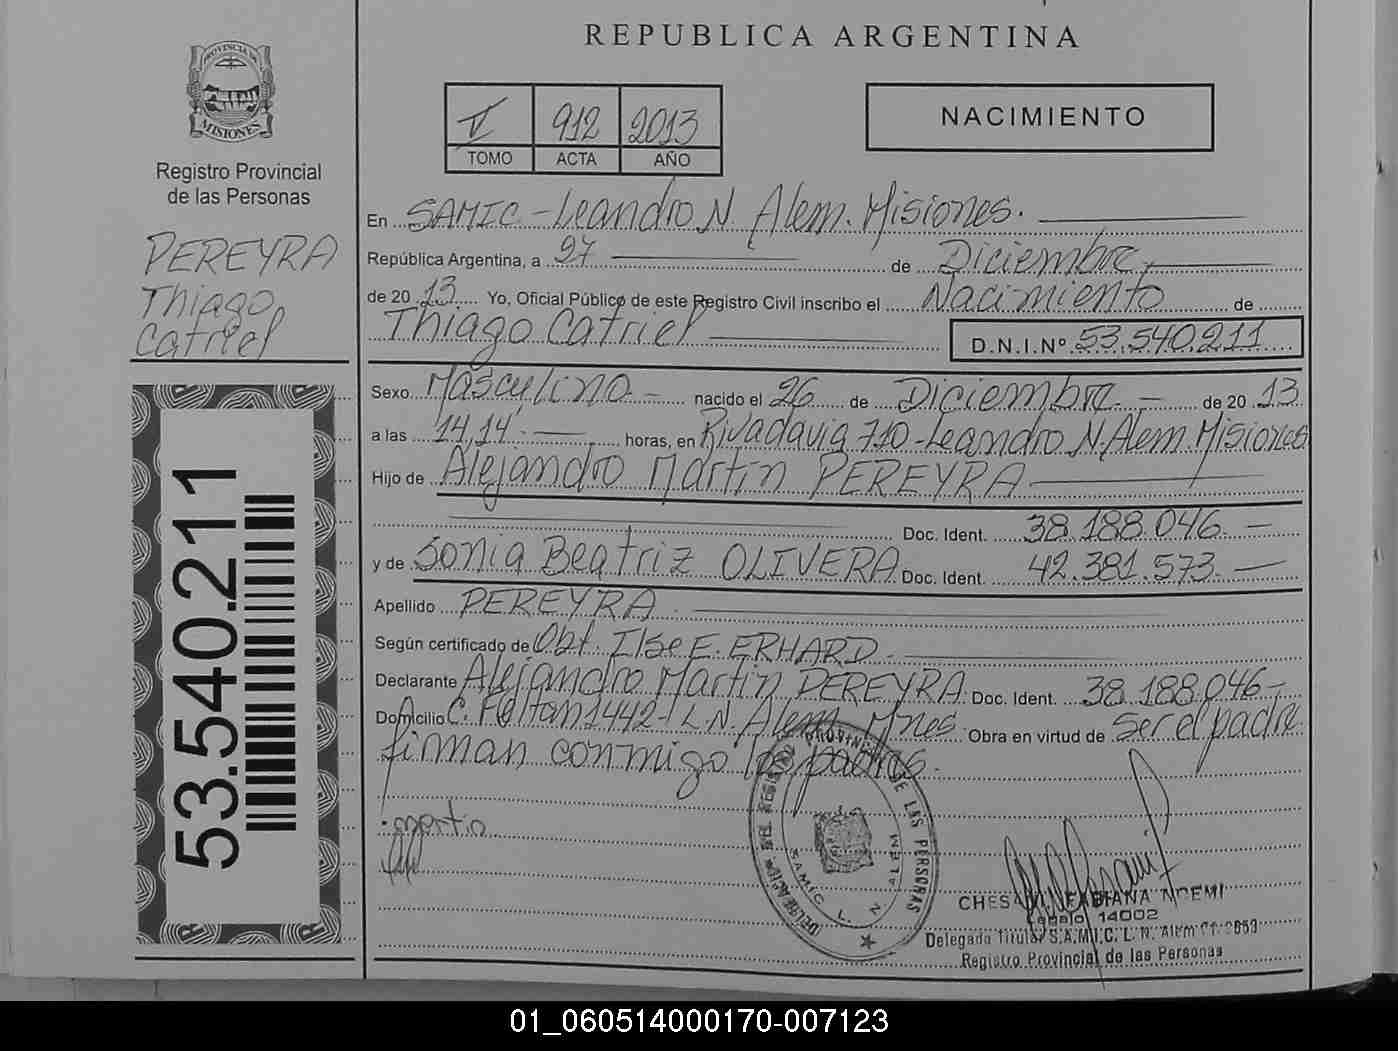 REPUBLICA ARGENTINA
PROVINCIA DE
MISIONES
Registro Provincial
de las Personas
PEREYRA
Thiago
Catriel
53.540.211
V 912 2013
TOMO ACTA AÑO
NACIMIENTO
En SAMIC - Leandro N. Alem. Misiones.
República Argentina, a 27 de Diciembre
de 20 13 Yo, Oficial Público de este Registro Civil inscribo el Nacimiento de
Thiago Catriel D.N.I.Nº 53.540.211
Sexo Masculino nacido el 26 de Diciembre de 20 13
a las 14,14 horas, en Rivadavia 710 - Leandro N. Alem. Misiones
Hijo de Alejandro Martin PEREYRA
Doc. Ident. 38.188.046.
y de Sonia Beatriz OLIVERA Doc. Ident. 42.381.573.
Apellido PEREYRA
Según certificado de Obt. Ilse E. ERHARD
Declarante Alejandro Martin PEREYRA Doc. Ident. 38.188.046-
Domicilio C. 1442- L.N. Alem Mnes Obra en virtud de ser el padre.
firman conmigo los padres.
martin
DELEGACION DEL REGISTRO PROVINCIAL DE LAS PERSONAS
SAMIC L. N. ALEM
FABIANA NOEMI
Legajo 14002
Delegada Titular S.A.M.I.C. L. N. Alem
Registro Provincial de las Personas
01_060514000170-007123